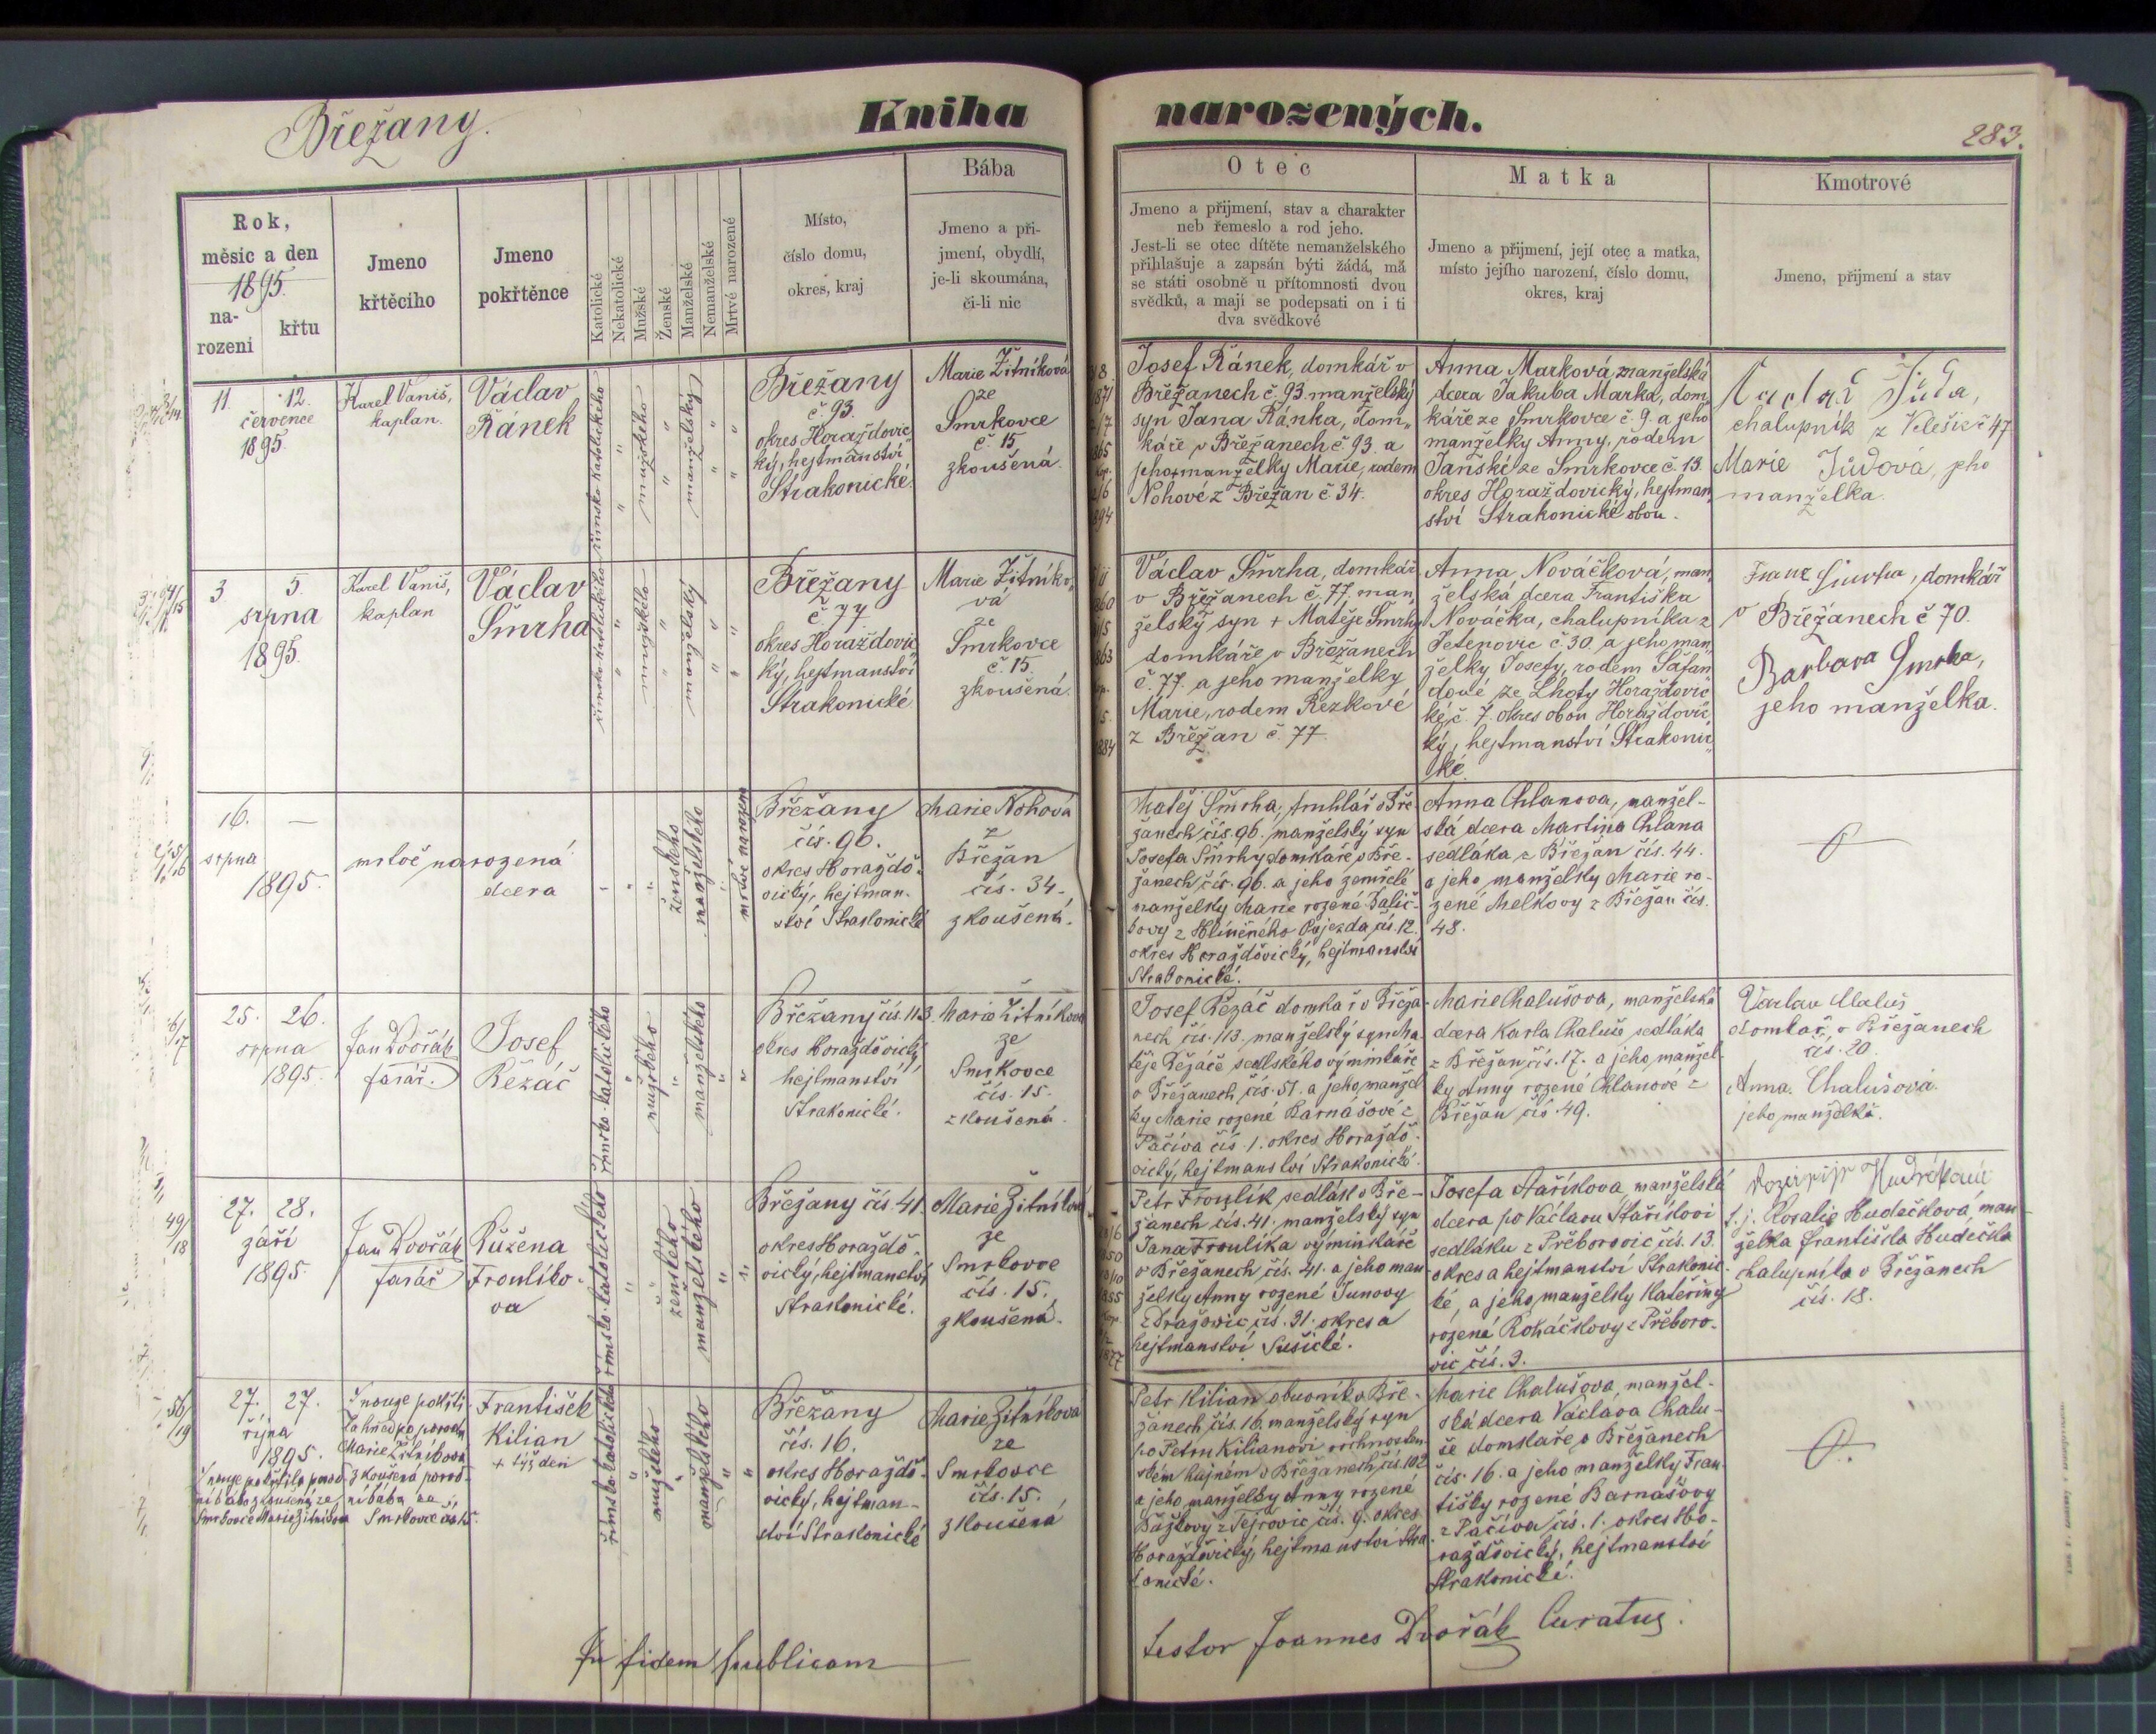 Břežany.
Kniha narozených.
283.
Rok,
měsíc a den
1895.
na-
rozeni
křtu
Jmeno
křtěcího
Jmeno
pokřtěnce
Katolické
Nekatolické
Mužské
Ženské
Manželské
Nemanželské
Mrtvě narozené
Místo,
číslo domu,
okres, kraj
Bába
Jmeno a při-
jmení, obydlí,
je-li skoumána,
či-li nic
Otec
Jmeno a přijmení, stav a charakter
neb řemeslo a rod jeho.
Jest-li se otec dítěte nemanželského
přihlašuje a zapsán býti žádá, má
se státi osobně u přítomnosti dvou
svědků, a mají se podepsati on i ti
dva svědkové
Matka
Jmeno a přijmení, její otec a matka,
místo jejího narození, číslo domu,
okres, kraj
Kmotrové
Jmeno, přijmení a stav
11. 12.
července
1895
Karel Vaniš,
kaplan.
Václav
Řánek
římsko katolického
mužského
manželský
Břežany
č. 93.
okres Horažďovic
ký, hejtmanství
Strakonické
Marie Žitníková
ze
Smrkovce
č. 15
zkoušená.
Josef Řánek, domkář v
Břežanech č. 93. manželský
syn Jana Řánka, dom„
káře v Břežanech č 93. a
jeho manželky Marie, rodem
Nohové z Břežan č 34.
Anna Marková, manželská
dcera Jakuba Marka, dom„
káře ze Smrkovce č. 9. a jeho
manželky Anny, rodem
Janské ze Smrkovce č. 13.
okres Horažďovický, hejtman„
ství Strakonické obou.
Jůda,
chalupník z Velešic č 47
Marie Jůdová, jeho
manželka.
3 5.
srpna
1895.
Karel Vaniš,
kaplan
Václav
Šmrha
římsko katolického
mužského
manželský
Břežany
č. 77.
okres Horažďovic„
ký, hejtmanství
Strakonické
Marie Žitníko„
vá
ze
Smrkovce
č. 15.
zkoušená.
Václav Šmrha, domkář
v Břežanech č. 77, man„
želský syn + Matěje Šmrhy
domkáře v Břežanech
č. 77. a jeho manželky
Marie, rodem Řezkové
z Břežan č 77.
Anna Nováčková, man„
želská dcera Františka
Nováčka, chalupníka z
Jetenovic č. 30. a jeho man„
želky Josefy, rodem Šafan
dové ze Lhoty Horažďovic
ké č. 7. okres obou Horažďovic„
ký, hejtmanství Strakonic„
ké.
Franz Smrha, domkář
v Břežanech č 70.
Barbara Smrha,
jeho manželka.
16. —
srpna
1895.
mrtvě narozená
dcera
ženského
manželského
mrtvě narozena
Břežany
čís. 96.
okres Horažďo-
vický, hejtman-
ství Strakonické
Marie Nohová
z
Břežan
čís. 34.
zkoušená.
Matěj Šmrha, truhlář v Bře-
žanech čís. 96. manželský syn
Josefa Šmrhy domkáře v Bře-
žanech čís. 96. a jeho zemřelé
manželky Marie rozené
z Hliněného Újezda čís. 12.
okres Horažďovický, hejtmanství
Strakonické.
Anna Chlanova, manžel-
ská dcera Martina Chlana
sedláka z Břežan čís. 44.
a jeho manželky Marie ro-
zené Melkovy z Břežan čís.
48.
25. 26.
srpna
1895.
Jan Dvořák
farář.
Josef
Řezáč
římsko-katolického
mužského
manželského
Břežany čís. 113.
okres Horažďovický
hejtmanství
Strakonické.
Marie Žitníkova
ze
Smrkovce
čís. 15.
zkoušená.
Josef Řezáč domkář v Břeža-
nech čís. 113. manželský syn Ma-
těje Řezáče sedlského výminkáře
v Břežanech čís. 51. a jeho manžel
ky Marie rozené Barnášové z
Pačiva čís. 1. okres Horažďo-
vický, hejtmanství Strakonické.
Marie Chalušova, manželská
dcera Karla Chaluše sedláka
z Břežan čís. 17. a jeho manžel-
ky Anny rozené Chlanové z
Břežan čís. 49.
Vaclav Chaluš
domkař v Břežanech
čís. 20.
Anna Chalušová
jeho manželka.
27. 28.
září
1895.
Jan Dvořák
farář
Růžena
Froulíko-
va
římsko-katolického
ženského
manželského
Břežany čís. 41.
okres Horažďo-
vický, hejtmanství
Strakonické.
Marie Žitníkova
ze
Smrkovce
čís. 15.
zkoušená.
Petr Froulík sedlák v Bře-
žanech čís. 41. manželský syn
Jana Froulíka výminkáře
v Břežanech čís. 41. a jeho man-
želky Anny rozené Junovy
z Dražovic čís. 31. okres a
hejtmanství Sušické.
Josefa Staříkova, manželská
dcera po Václavu Staříkovi
sedláku z Přeborovic čís. 13.
okres a hejtmanství Strakonic-
ké, a jeho manželky Kateřiny
rozené Roháčkovy z Přeboro-
vic čís. 3.
t. j. Rosalie Hudečková, man
želka Františka Hudečka
chalupníka v Břežanech
čís. 18.
27. 27.
října
1895.
V nouze pokřtila porod-
ní bába zkoušená ze
Smrkovce Marie Žitníkova
V nouze pokřti-
la hned po porodu
Marie Žitníkova
zkoušená porod-
ní bába ze
Smrkovce čís 15.
František
Kilian
+ týž den
římsko-katolického
mužského
manželského
Břežany
čís. 16.
okres Horažďo-
vický, hejtman-
ství Strakonické
Marie Žitníkova
ze
Smrkovce
čís. 15.
zkoušená
Petr Kilian obuvník v Bře-
žanech čís. 16. manželský syn
po Petru Kilianovi vrchnosten-
ském hajném v Břežanech čís. 102
a jeho manželky Anny rozené
Bážkovy z Tejřovic čís. 9. okres
Horažďovický, hejtmanství Stra
konické.
Marie Chalušova, manžel-
ská dcera Václava Chalu-
še domkaře v Břežanech
čís. 16. a jeho manželky Fran-
tišky rozené Barnášovy
z Pačiva čís. 1. okres Ho-
ražďovický, hejtmanství
Strakonické.
In fidem publicam
testor Joannes Dvořák Curatus.